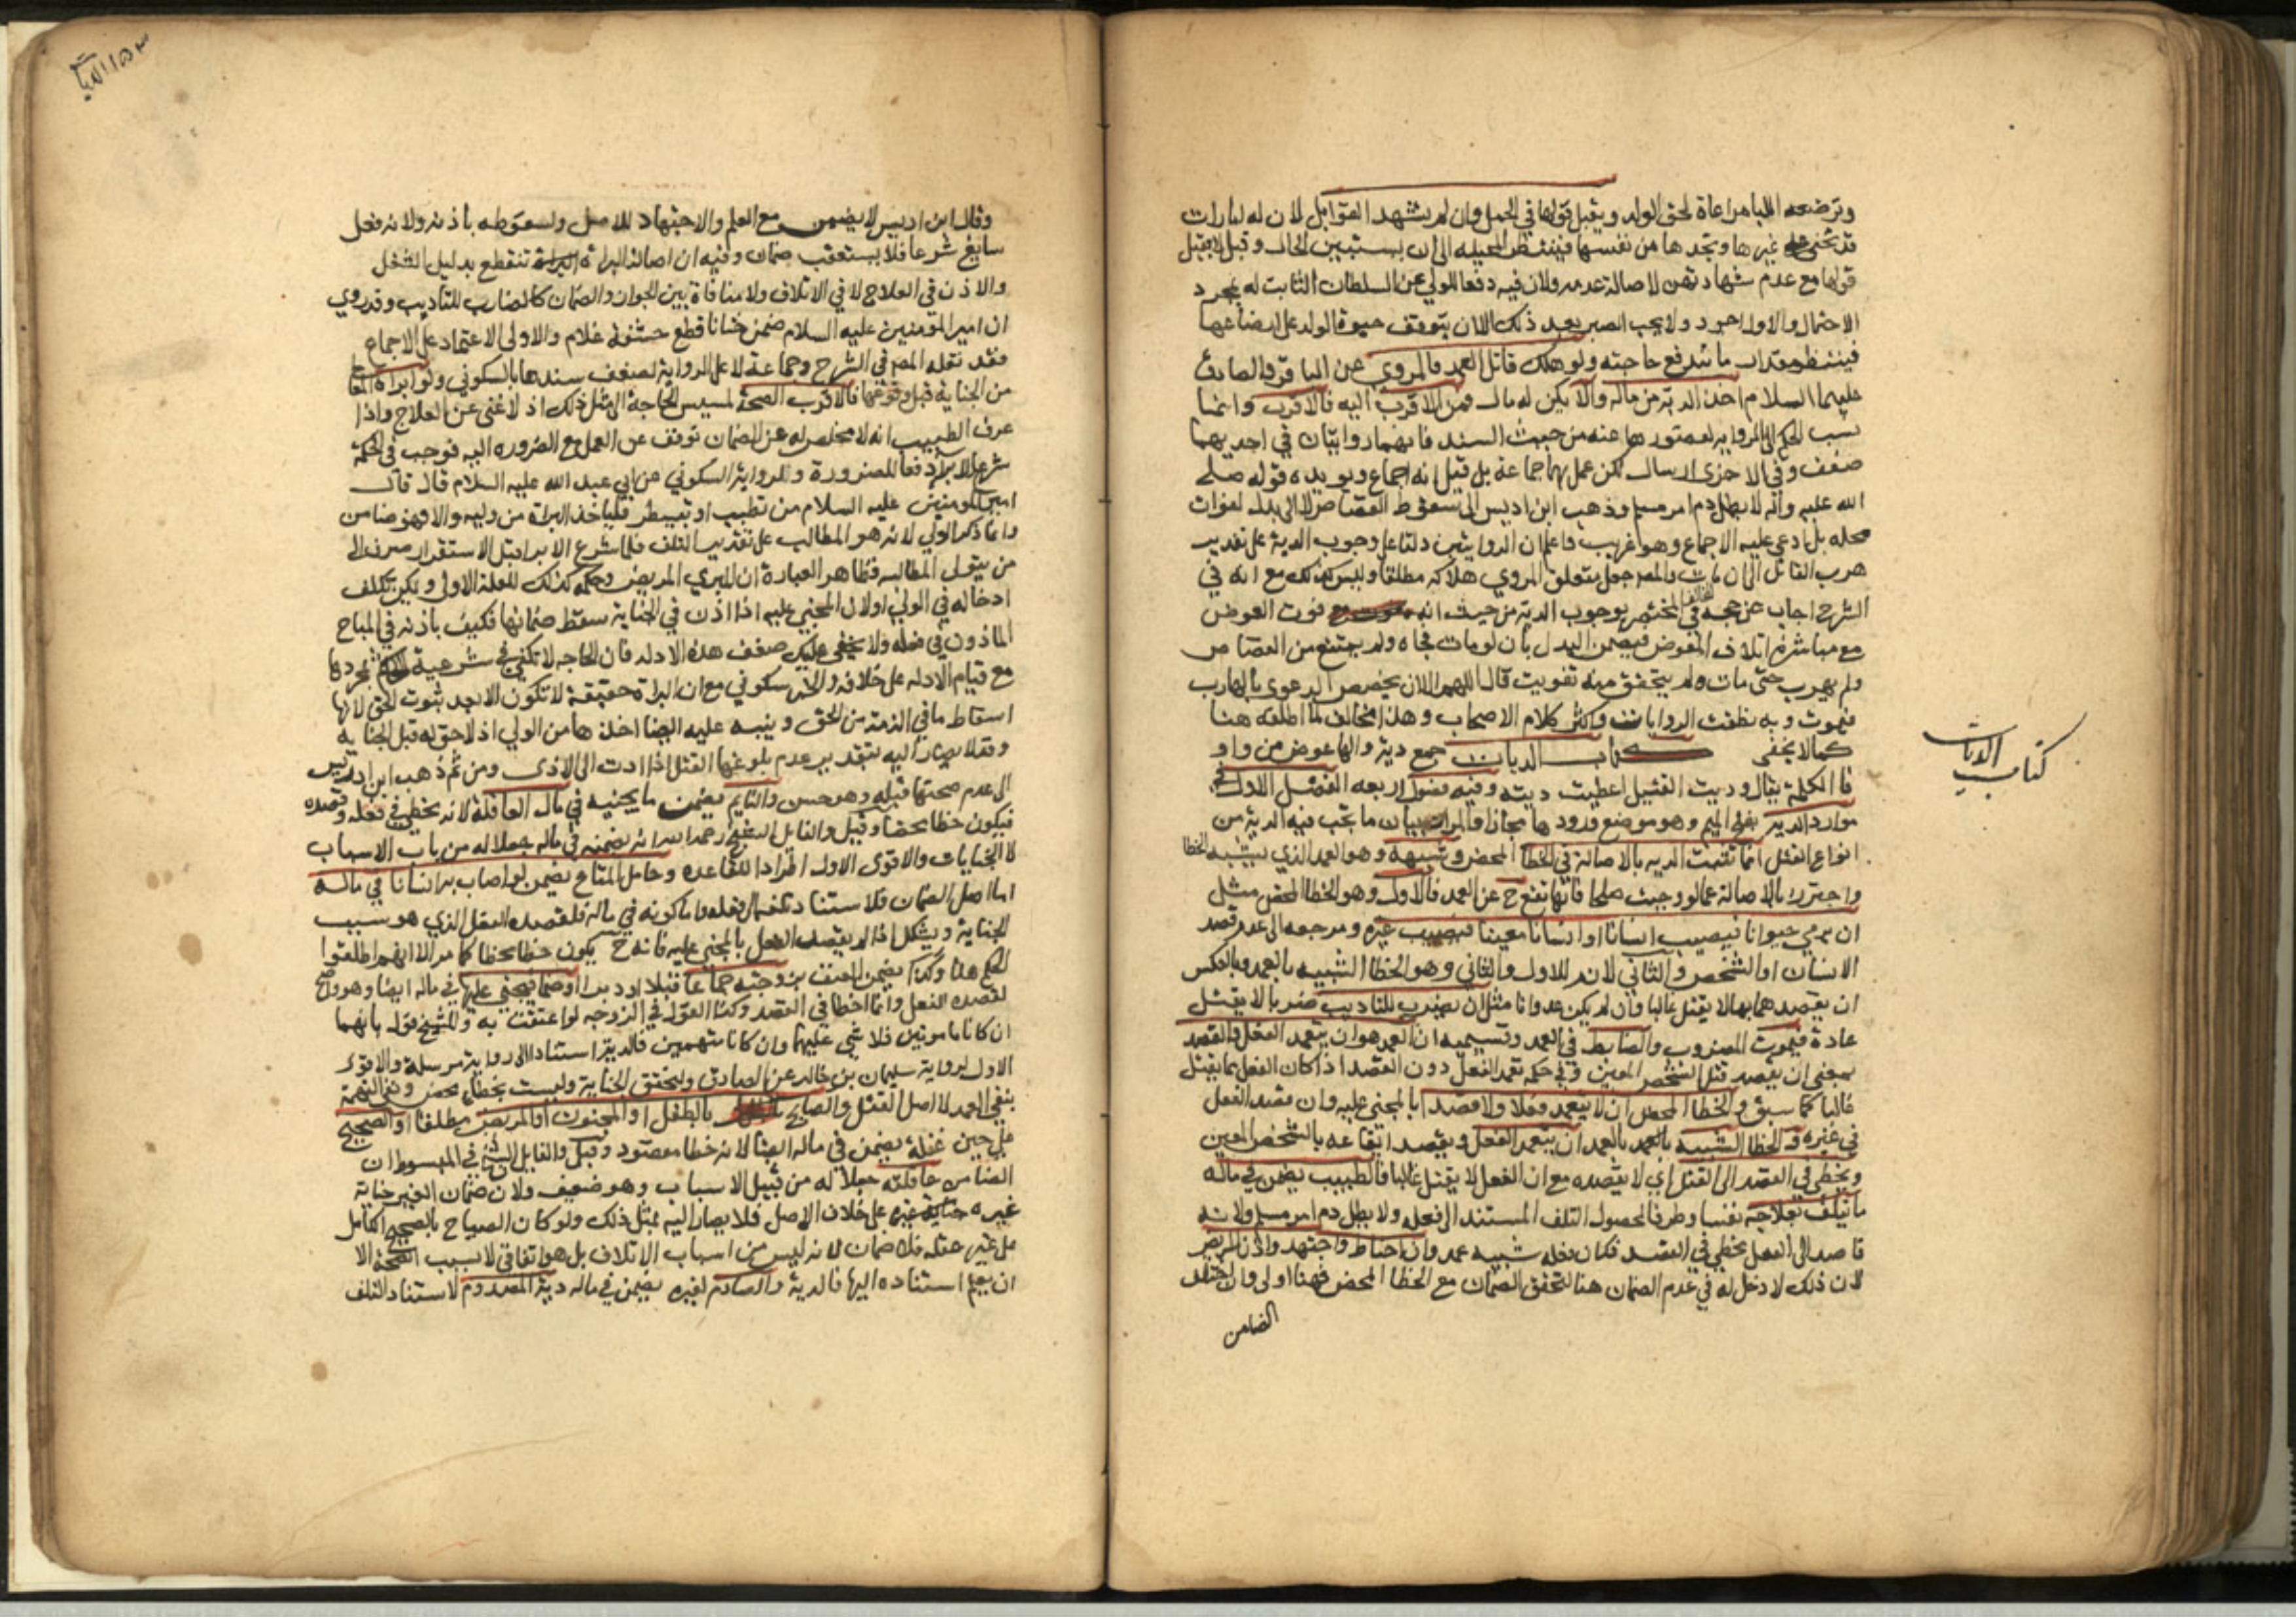 وترضعه اللبا مراعاة لحق الولد ويقبل قولها في الحمل وان لم يشهد القوابل لان له امارات
قد تخفى على غيرها وتجدها من نفسها فينتظر المخيلة الى ان يستبين الحال وقيل لا يقبل
قولها مع عدم شهادتهن لاصالة عدمه ولان فيه دفعا للولي عن السلطان الثابت له بمجرد
الاحتمال والاول اجود ولا يجب الصبر بعد ذلك الا ان يتوقف حيوة الولد على ارضاعها
فينتظر مقدار ما تندفع حاجته ولو هلك قاتل العمد فالمروي عن الباقر والصادق
عليهما السلام اخذ الدية من ماله والا يكن له مال فمن الاقرب اليه فالاقرب وانما
نسب الحكم الى الرواية لقصورها عنه من حيث السند فانهما روايتان في احديهما
ضعف وفي الاخرى ارسال لكن عمل بها جماعة بل قيل انه اجماع ويويده قوله صلى
الله عليه واله لا يطل دم امرء مسلم وذهب ابن ادريس الى سقوط القصاص لا الى بدل لفوات
محله بل ادعى عليه الاجماع وهو غريب واعلم ان الروايتين دلتا على وجوب الدية على تقدير
هرب القاتل الى ان مات والمصـ جعل متعلق المروي هلاكه مطلقا وليس كذلك مع انه في
الشرح اجاب عن حجة المختلف بوجوب الدية من حيث انه فوت العوض
مع مباشرة اتلاف المعوض فيضمن البدل بان لو مات فجاة ولم يمتنع من القصاص
ولم يهرب حتى مات ولم يتحقق منه تفويت قال اللهم الا ان يخصص الدعوى بالهارب
فيموت وبه نطقت الروايات واكثر كلام الاصحاب وهذا مخالف لما اطلقه هنا
كما لا يخفى كتاب الديات جمع دية والها عوض من واو
فا الكلمة يقال وديت القتيل اعطيت ديته وفيه فصول اربعة الفصل الاول في
موارد الدية بفتح الميم وهو موضع ورودها مجازا والمراد بيان ما تجب فيه الدية من
انواع القتل انما تثبت الدية بالاصالة في الخطا المحض وشبيهه وهو العمد الذي يشبه الخطا
واحترز بالاصالة عما لو وجبت صلحا فانها تقع ح عن العمد فالاول وهو الخطا المحض مثل
ان يرمي حيوانا فيصيب انسانا او انسانا معينا فيصيب غيره ومرجعه الى عدم قصد
الانسان او الشخص والثاني لازم للاول والثاني وهو الخطا الشبيه بالعمد وبالعكس
ان يقصدهما بما لا يقتل غالبا وان لم يكن عدوانا مثل ان يضرب للتاديب ضربا لا يقتل
عادة فيموت المضروب والضابط في العمد وقسيميه ان العمد هو ان يتعمد الفعل والقصد
بمعنى ان يقصد قتل الشخص المعين وفي حكمه تعمد الفعل دون القصد اذا كان الفعل مما يقتل
غالبا كما سبق والخطا المحض ان لا يتعمد فعلا ولا قصدا بالمجني عليه وان قصد الفعل
في غيره والخطا الشبيه بالعمد بالعمد ان يتعمد الفعل ويقصد ايقاعه بالشخص المعين
ويخطي في القصد الى القتل اي لا يقصده مع ان الفعل لا يقتل غالبا فالطبيب يضمن في ماله
ما يتلف بعلاجه نفسا وطرفا لحصول التلف المستند الى فعله ولا يطل دم امرء مسلم ولانه
قاصد الى الفعل مخطي في القصد فكان فعله شبيه عمد وان احتاط واجتهد واذن المريض
لان ذلك لا دخل له في عدم الضمان هنا لتحقق الضمان مع الخطا المحض فهنا اولى وان اختلف
الضامن
كتاب الديات
وقال ابن ادريس لا يضمن مع العلم والاجتهاد للاصل ولسقوطه باذنه ولانه فعل
سايغ شرعا فلا يستعقب ضمانا وفيه ان اصالة البراءة تنقطع بدليل الشغل
والاذن في العلاج لا في الاتلاف ولا منافاة بين الجواز والضمان كالضارب للتاديب وقد روي
ان امير المومنين عليه السلام ضمن ختانا قطع حشفة غلام والاولى الاعتماد على الاجماع
فقد نقله المصـ في الشرح وجماعة لا على الرواية لضعف سندها بالسكوني ولو ابراه المعالج
من الجناية قبل وقوعها فالاقرب الصحة لمسيس الحاجة الى مثل ذلك اذ لا غنى عن العلاج واذا
عرف الطبيب انه لا مخلص له عن الضمان توقف عن العمل مع الضرورة اليه فوجب في الحكمة
شرع الابراء دفعا للضرورة ولرواية السكوني عن ابي عبد الله عليه السلام قال قال
امير المومنين عليه السلام من تطبب او تبيطر فلياخذ البراة من وليه والا فهو ضامن
وانما ذكر الولي لانه هو المطالب على تقدير التلف فلما شرع الابرا قبل الاستقرار صرف الى
من يتولى المطالبة فظاهر العبارة ان المبري المريض وحكمه كذلك للعلة الاولى ويمكن بتكلف
ادخاله في الولي اولان المجني عليه اذا اذن في الجناية سقط ضمانها فكيف باذنه في المباح
الماذون في فعله ولا يخفى عليك ضعف هذه الادلة فان الحاجة لا تكفي في شرعية الحكم بمجردها
مع قيام الادلة على خلافه والخبر سكوني مع ان البراة حقيقة لا تكون الا بعد ثبوت الحق لانها
اسقاط ما في الذمة من الحق وينبه عليه ايضا اخذها من الولي اذ لا حق له قبل الجناية
وقد لا يصار اليه بتقدير عدم بلوغها القتل اذا ادت الى الاذى ومن ثم ذهب ابن ادريس
الى عدم صحتها قبله وهو حسن والنايم يضمن ما يجنيه في مال العاقلة لانه مخطي في فعله وقصده
فيكون خطا محضا وقيل والقايل الشيخ رحمه الله انه يضمنه في ماله جعلا له من باب الاسباب
لا الجنايات والاقوى الاول اطرادا للقاعدة وحامل المتاع يضمن لو اصاب به انسانا في ماله
اما اصل الضمان فلاستناد تلفه الى فعله واما كونه في ماله فلقصده الفعل الذي هو سبب
الجناية ويشكل اذا لم يقصد الفعل بالمجني عليه فانه ح يكون خطا محضا كما مر الا انهم اطلقوا
الحكم هنا وكذا يضمن المعنف بزوجته جماعا قبلا او دبرا او ضما فيجني عليها في ماله ايضا وهو واضح
لقصده الفعل وانما اخطا في القصد وكذا القول في الزوجة لو اعنفت به وللشيخ قول بانهما
ان كانا مامونين فلا شي عليهما وان كانا متهمين فالدية استنادا الى رواية مرسلة والاقوى
الاول لرواية سليمان بن خالد عن الصادق ولتحقق الجناية وليست بخطا محض ونفي التهمة
ينفي العمد لا اصل القتل والصايح بالطفل او المجنون او المريض مطلقا او الصحيح
على حين غفلة يضمن في ماله ايضا لانه خطا مقصود وقيل والقايل الشيخ في المبسوط ان
الضامن عاقلته جعلا له من قبيل الاسباب وهو ضعيف ولان ضمان الغير جناية
غيره على خلاف الاصل فلا يصار اليه بمثل ذلك ولو كان الصياح بالصحيح الكامل
على غير غفلة فلا ضمان لانه ليس من اسباب الاتلاف بل هو اتفاقي لا بسبب الصيحة الا
ان يعلم استناده اليها فالدية والصادم لغيره يضمن في ماله دية المصدوم لاستناد التلف